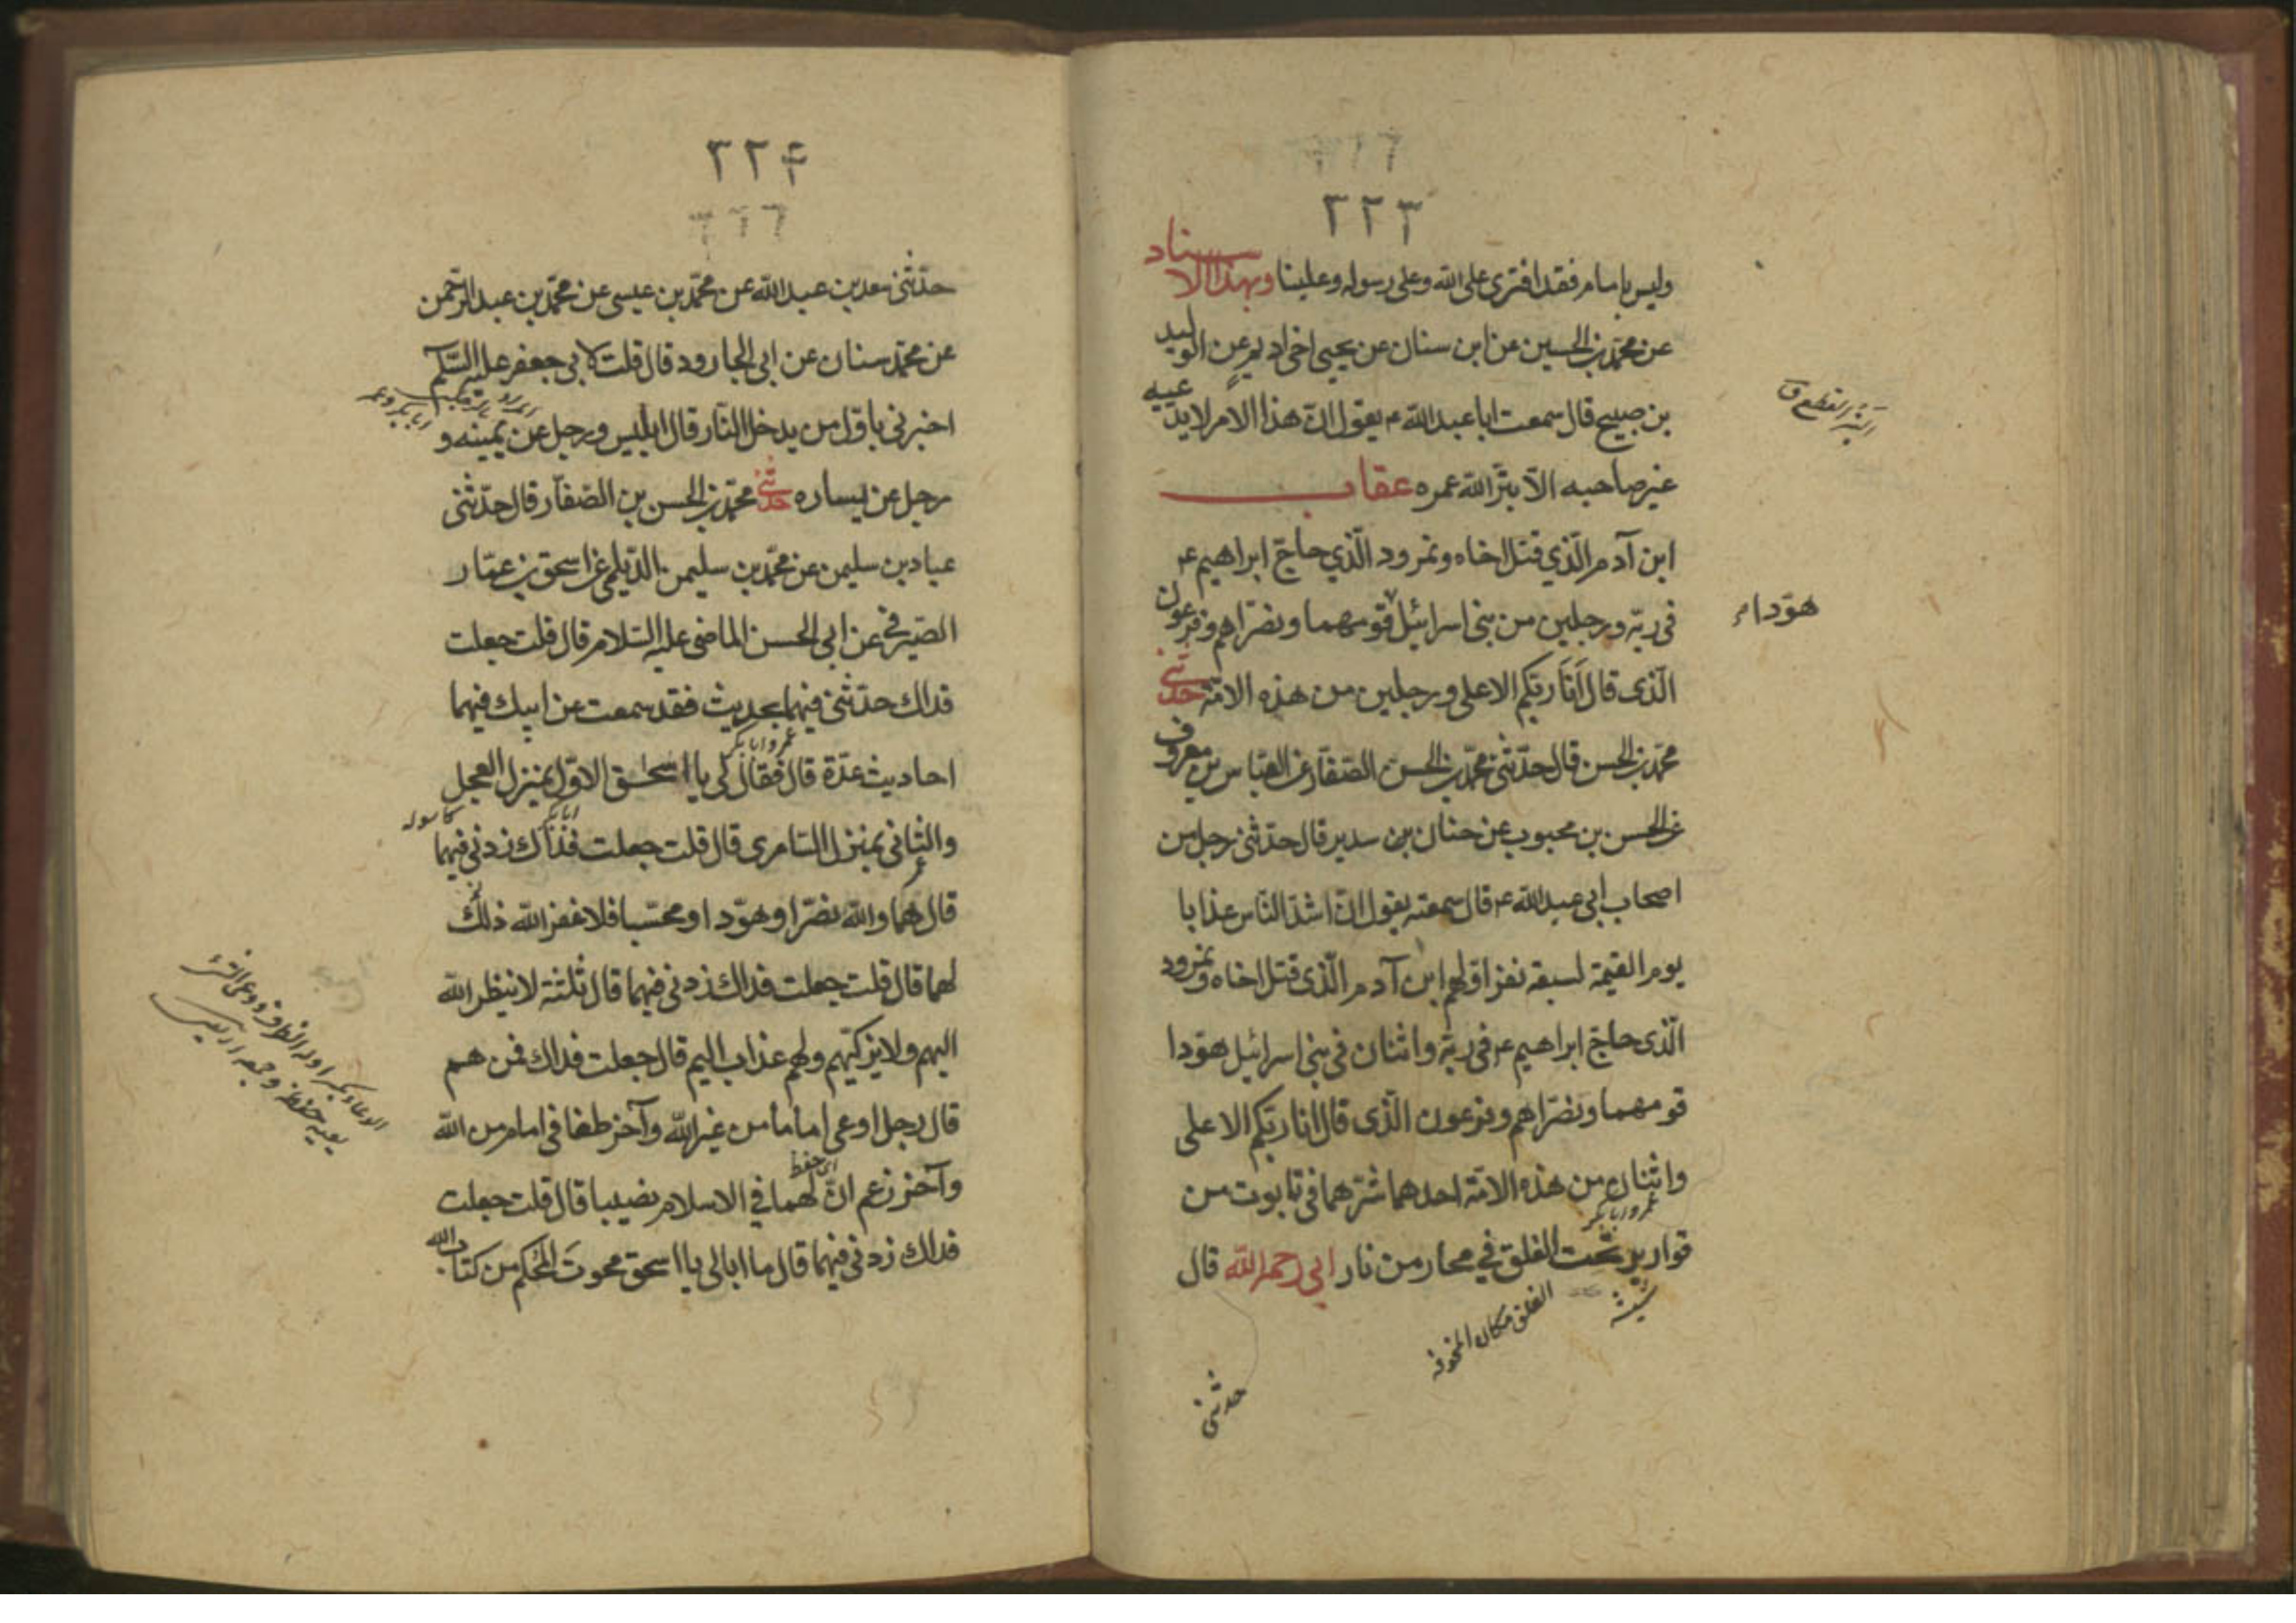 ٣٢٣
وليس بامام فقد افترى على الله وعلى رسوله وعلينا وبهذا الاسناد
عن محمد بن الحسين عن ابن سنان عن يحيى اخي اديم عن الوليد
بن صبيح قال سمعت ابا عبد الله ع يقول ان هذا الامر لا يدعيه
غير صاحبه الا بتر الله عمره عقاب
ابن آدم الذي قتل اخاه ونمرود الذي حاج ابراهيم ع
في ربه ورجلين من بني اسرائيل قومهما ونصراهم وفرعون
الذى قال أنا ربكم الاعلى ورجلين من هذه الامة حدثني
محمد بن الحسن قال حدثنى محمد بن الحسن الصفار عن العباس بن معروف
عن الحسن بن محبوب عن حنان بن سدير قال حدثنى رجل من
اصحاب ابي عبد الله ع قال سمعته يقول ان اشد الناس عذابا
يوم القيمة لسبعة نفر اولهم ابن آدم الذى قتل اخاه ونمرود
الذى حاج ابراهيم ع في ربه واثنان في بني اسرائيل هودا
قومهما ونصراهم وفرعون الذى قال انا ربكم الاعلى
واثنان من هذه الامة احدهما شرهما في تابوت من
عمر وابابكر
قوارير تحت الفلق في محار من نار ابي رحمه الله قال
شيشه
الفلق مكان
حدثنى
البتر القطع ق
هودا م
٣٢٤
حدثنى سعد بن عبد الله عن محمد بن عيسى عن محمد بن عبد الرحمن
عن محمد سنان عن ابي الجارود قال قلت لابي جعفر عليه السلام
ابابكر وعمر
اخبرني باول من يدخل النار قال ابليس ورجل عن يمينه و
رجل عن يساره حدثني محمد بن الحسن بن الصفار قال حدثنى
عباد بن سليمن عن محمد بن سليمن الديلمي عن اسحق بن عمار
الصيرفي عن ابي الحسن الماضى عليه السلام قال قلت جعلت
فداك حدثنى فيهما بحديث فقد سمعت عن ابيك فيهما
عمر وابابكر
احاديث عدة قال فقال لي يا اسحق الاول بمنزل العجل
ابابكر
والثانى بمنزل السامرى قال قلت جعلت فداك زدنى فيهما
عمر
قال هما والله نصرا وهودا ومجسا فلا غفر الله ذلك
لهما قال قلت جعلت فداك زدنى فيهما قال ثلثة لا ينظر الله
اليهم ولا يزكيهم ولهم عذاب اليم قال جعلت فداك فمن هم
قال رجل ادعى اماما من غير الله وآخر طغا في امام من الله
اى حفظ
وآخر زعم ان لهما في الاسلام نصيبا قال قلت جعلت
فداك زدنى فيهما قال ما ابالى يا اسحق محوت المحكم من كتاب الله